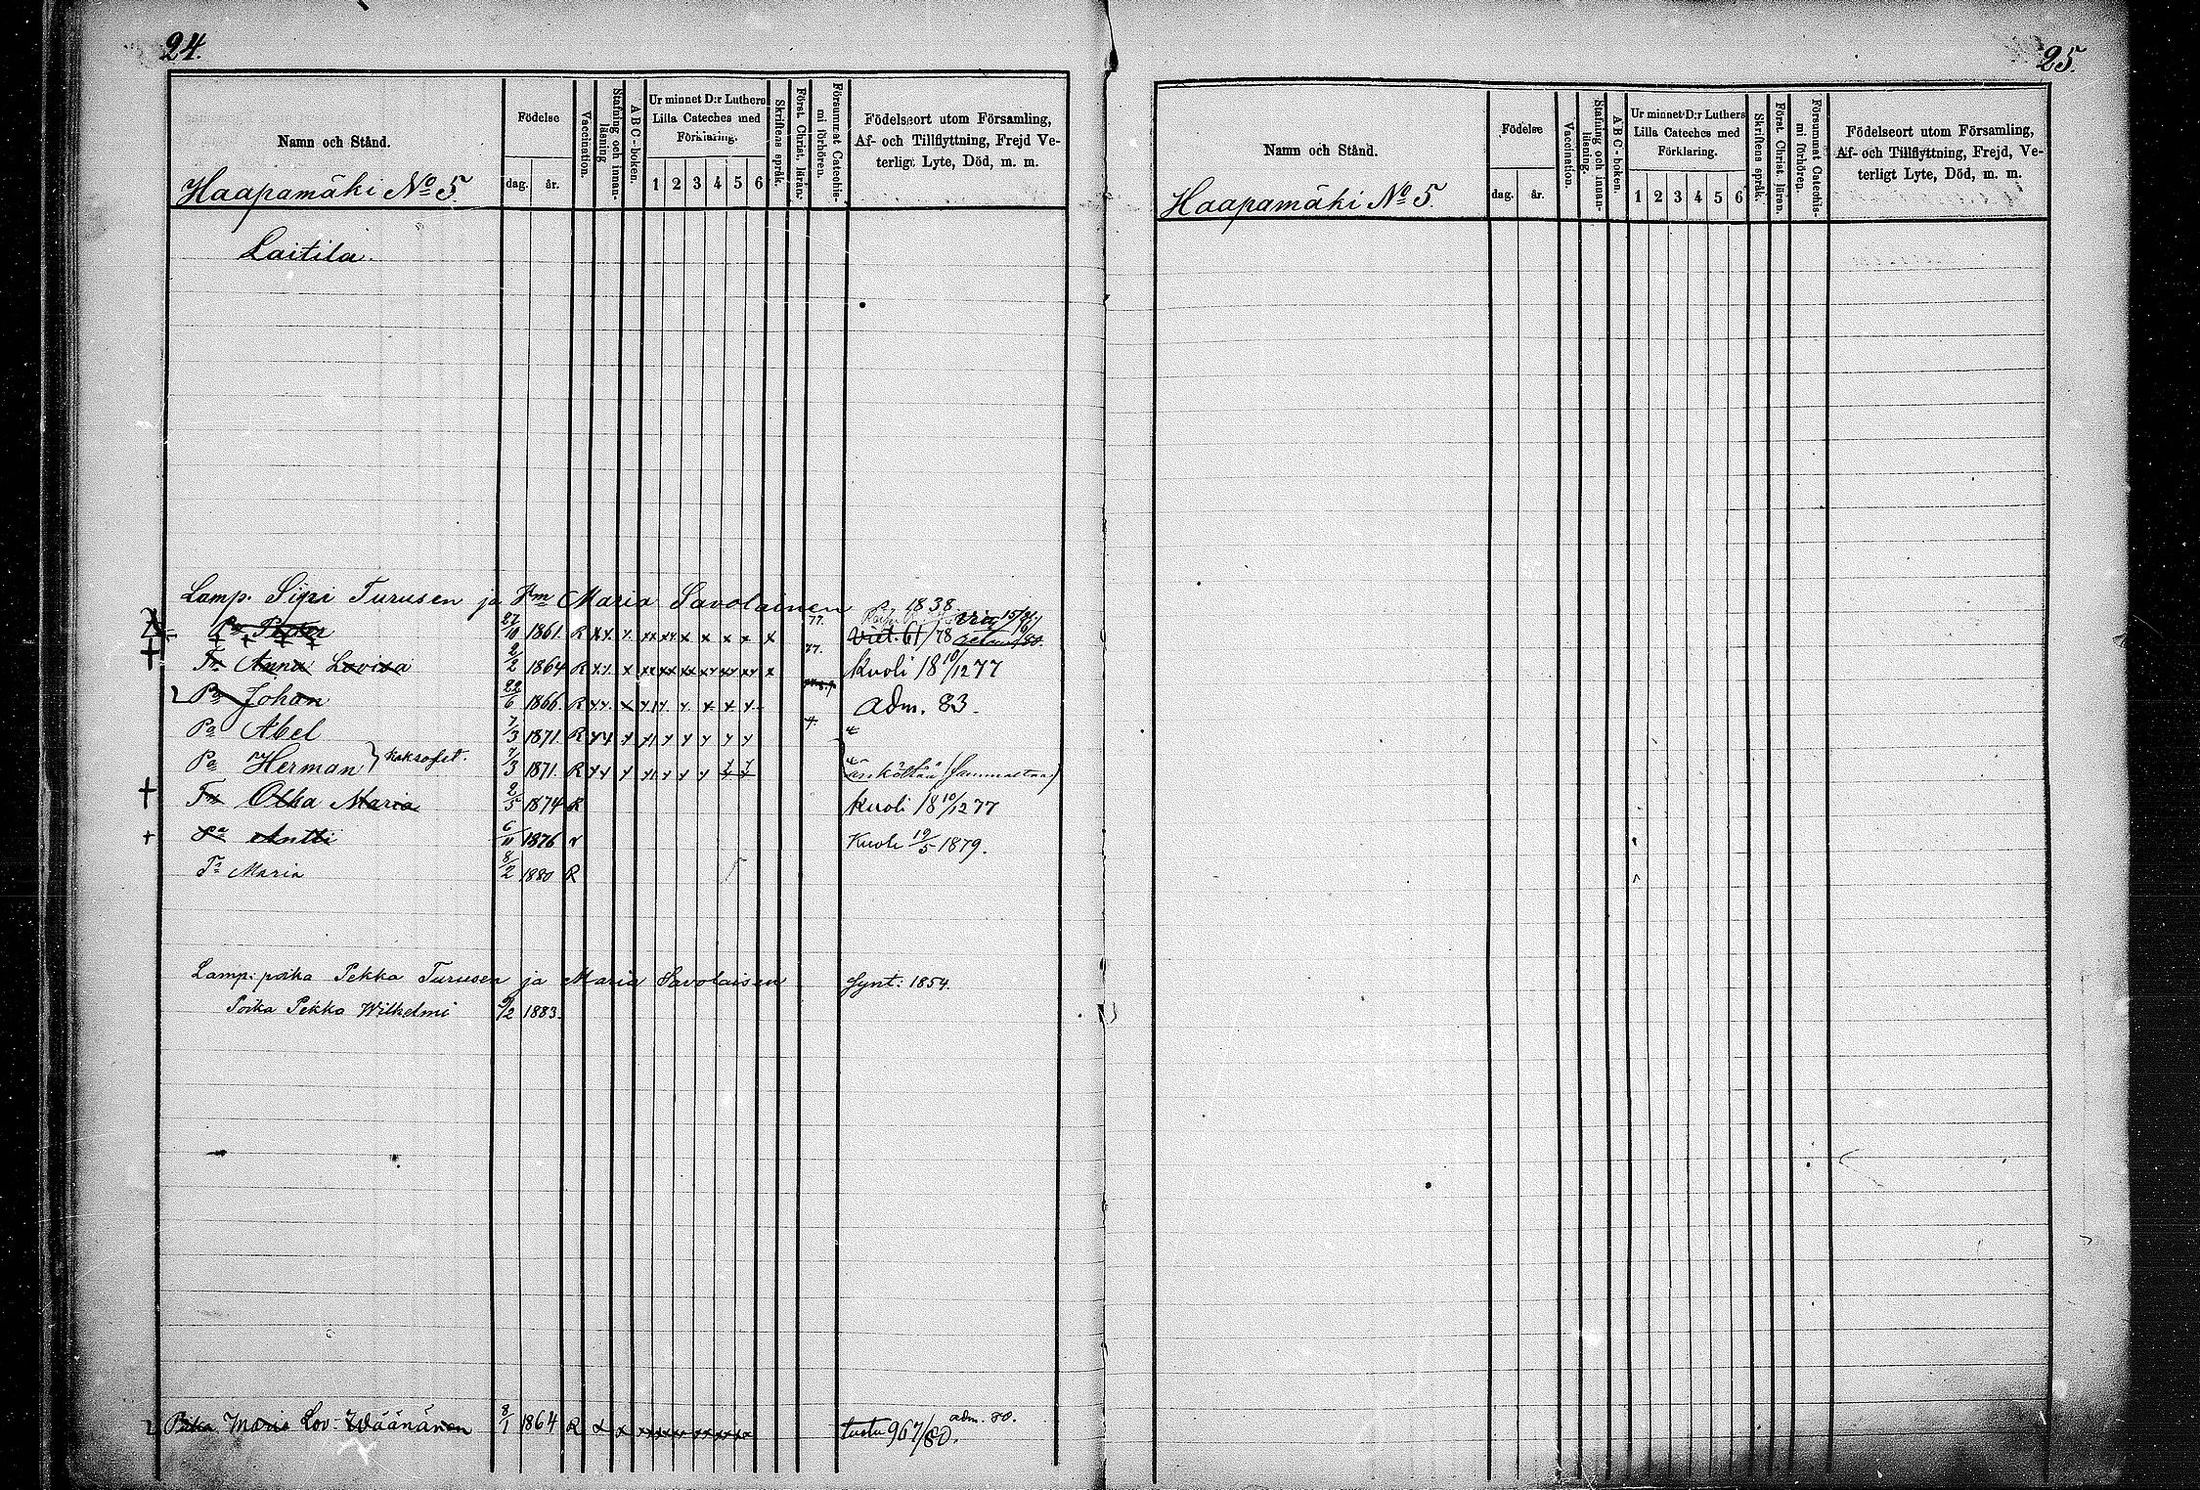 24.
Namn och Stånd.
Haapamäki No 5
Födelse
dag. år.
Vaccination.
Stafning och innan-
läsning
ABC-boken.
Ur minnet D:r Luthers
Lilla Cateches med
Förklaring.
1 2 3 4 5 6
Skriftens språk.
Först. Christ. läran.
Försummat Catechis-
mi förhören.
Födelseort utom Församling,
Af- och Tillflyttning, Frejd Ve-
terligt Lyte, Död, m. m.
Laitila.
Lamp. Sipi Turusen ja Vm Maria Savolainen 1838
Pa Pekka 27/10 1861. R x x x xx xx x x x x x 77. 61/78
Tr Anna Lovisa 2/2 1864 R x x x xx xx xx xx xx xx x 77. Kuoli 18 10/12 77
Pa Johan 22/6 1866. R adm. 83.
Pa Abel 7/3 1871 R
Pa Herman } kaksoset. 7/3 1871. R änköttää (sammaltaa)
Tr Olka Maria 2/5 1874 R Kuoli 18 10/12 77
Pa Antti 6/11 1876 r Kuoli 19/5 1879.
Tr Maria 8/2 1880 R
Lamp: poika Pekka Turusen ja Maria Savolaisen Synt: 1854.
Poika Pekka Wilhelmi 9/2 1883.
Piika Maria Lov. Wäänänen 8/1 1864 R x x xx xx xx xx xx xx tustu 967/80. adm. 80.
25.
Namn och Stånd.
Haapamäki No 5.
Födelse
dag. år.
Vaccination.
Stafning och innan-
läsning.
ABC-boken.
Ur minnet D:r Luthers
Lilla Cateches med
Förklaring.
1 2 3 4 5 6
Skriftens språk.
Först. Christ. läran.
Försummat Catechis-
mi förhören.
Födelseort utom Församling,
Af- och Tillflyttning, Frejd, Ve-
terligt Lyte, Död, m. m.